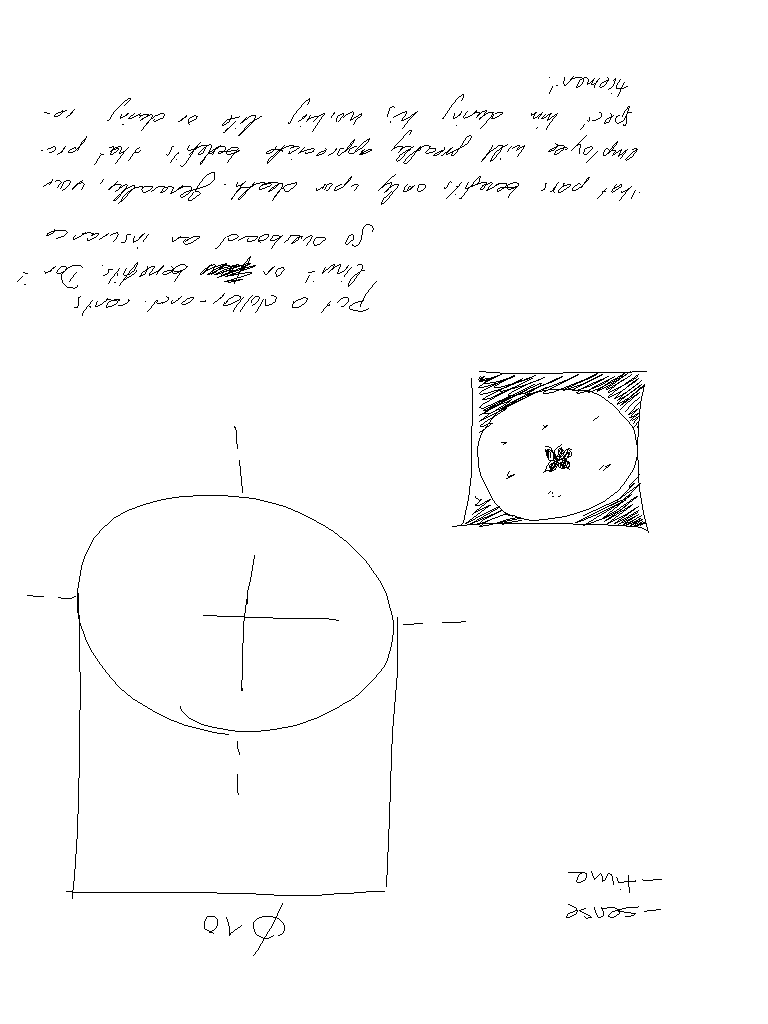 - sense
- time
Ø 10
Put a dollar-and-cents
limit on benefits. Don't
go overboard on insurance
that pays benefits only upon death. Generally, your
employee will greatly appreciate benefits that pro-
tect him during his working life or during re-
tirement.